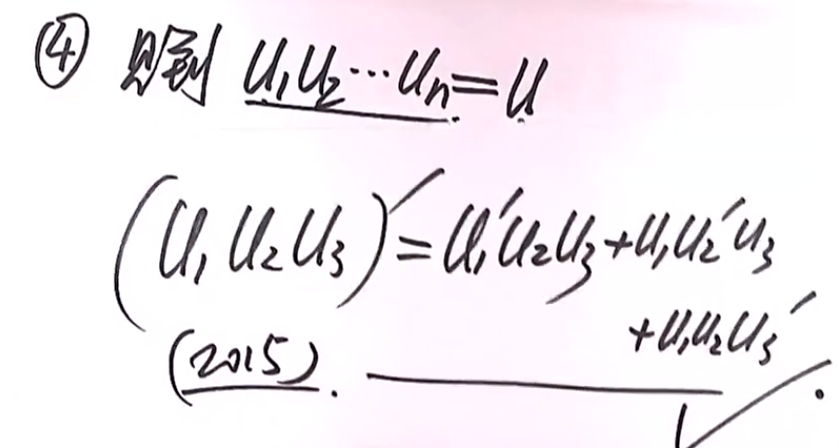 ④ 则到 u₁u₂⋯uₙ=u
(u₁u₂u₃)′=u₁′u₂u₃+u₁u₂′u₃
+u₁u₂u₃′
(2015).